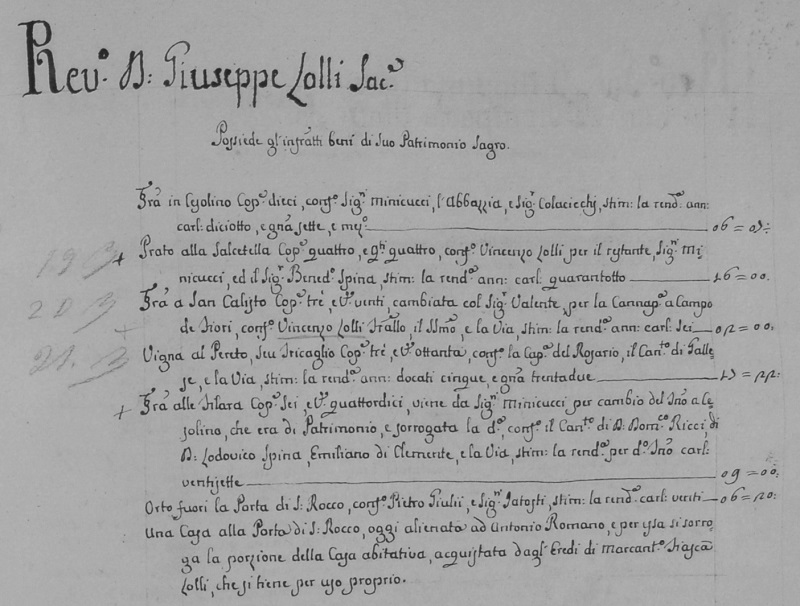 Rev.º D: Giuseppe Lolli Sac.e
Possiede gl'infr̃atti beni di suo Patrimonio Sagro.
Tr̃a in Cesolino Cop.e dieci, conf.o Sig.i Minicucci, l'Abbazzia, e Sig.i Colaciechi, stim: la rend.a ann:
carl: diciotto, e gñà sette, e mez.o 06=05:
19 + Prato alla Salcetella Cop.e quattro, e quattro, conf.o Vincenzo Lolli per il restante, Sig.i Mi
nicucci, ed il Sig.r Bened.o Spina stim: la rend.a ann: carl: quarantotto 16=00.
20 Tr̃a a San Calisto Cop.e trè, e venti, cambiata col Sig.r Valente, per la Cannap.a a Campo
+ de Fiori, conf.o Vincenzo Lolli Fr̃allo, il SSmo, e la Via, stim: la rend.a ann: carl: Sei 02=00.
21. Vigna al Pereto, seu Tricaglio Cop.e trè, e ottanta, conf.o la Cap.a del Rosario, il Can.to di Galle
se, e la Via, stim: la rend.a ann: docati cinque, e gñà trentadue
+ Tr̃a alle Filara Cop.e Sei, e quattordici, viene da Sig.i Minicucci per cambio del a Ce
solino, che era di Patrimonio, e sorrogata la d.a, conf.o il Can.to di D: Dom.co Ricci, di
D: Lodovico Spina, Emiliano di Clemente, e la Via, stim: la rend.a per d.o carl:
ventisette 09=00:
Orto fuori la Porta di S: Rocco, conf.o Pietro Giulii, e Sig.i Tatosti, stim: la rend.a carl: venti 06=20:
Una Casa alla Porta di S: Rocco, oggi alienata ad Antonio Romano, e per essa si sorro
ga la porzione della Casa abitativa, acquistata dagl'Eredi di Marcant.o
Lolli, che si tiene per uso proprio.